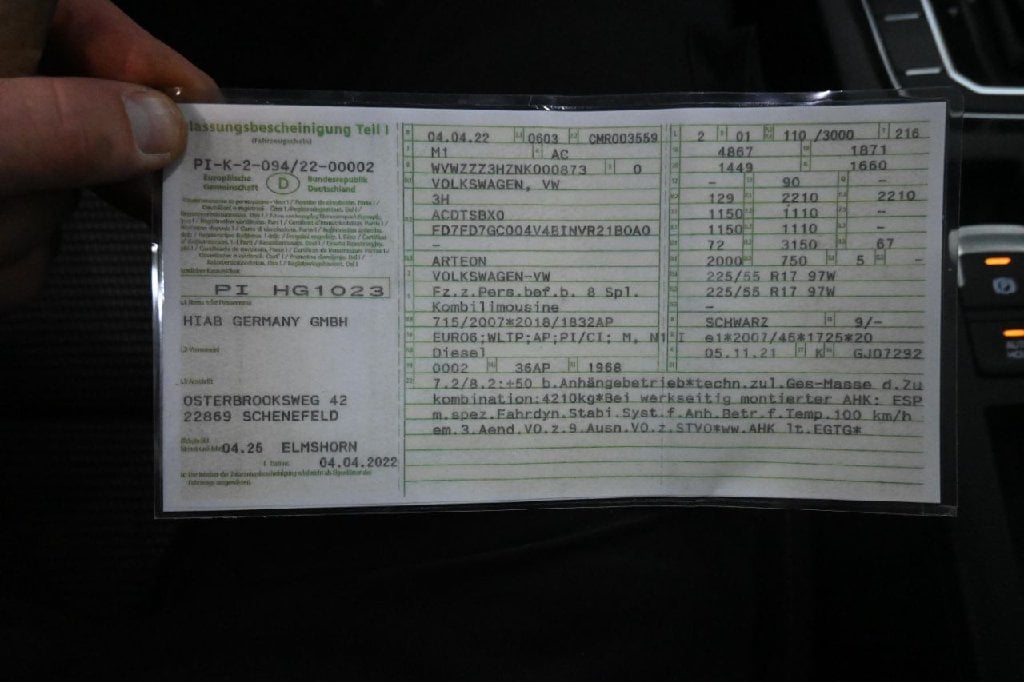 lassungsbescheinigung Teil I
(Fahrzeugschein)
PI-K-2-094/22-00002
Europäische Gemeinschaft
D
Bundesrepublik Deutschland
PI HG1023
HIAB GERMANY GMBH
OSTERBROOKSWEG 42
22869 SCHENEFELD
04.25 ELMSHORN
04.04.2022
04.04.22 0603 CMR003559
M1 AC
WVWZZZ3HZNK000873 0
VOLKSWAGEN, VW
3H
ACDTSBX0
FD7FD7GC004V4BINVR21B0A0
–
ARTEON
VOLKSWAGEN-VW
Fz.z.Pers.bef.b. 8 Spl.
Kombilimousine
715/2007*2018/1832AP
EURO6;WLTP;AP;PI/CI; M, N1 I
Diesel
0002 36AP 1968
2 01 110 /3000 216
4867 1871
1449 1660
– 90 –
129 2210 2210
1150 1110 –
1150 1110 –
72 3150 67
2000 750 5 –
225/55 R17 97W
225/55 R17 97W
–
SCHWARZ 9/–
e1*2007/46*1725*20
05.11.21 K GJD7292
7.2/8.2:+50 b.Anhängebetrieb*techn.zul.Ges-Masse d.Zu
kombination:4210kg*Bei werkseitig montierter AHK: ESP
m.spez.Fahrdyn.Stabi.Syst.f.Anh.Betr.f.Temp.100 km/h
em.3.Aend.VO.z.9.Ausn.VO.z.STVO*ww.AHK lt.EGTG*